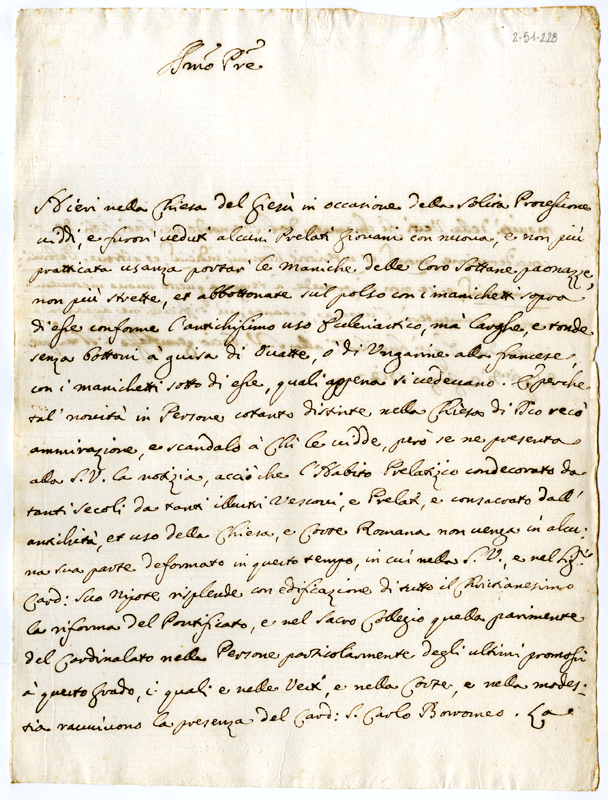 2-51-228
Bmo Pre
Hieri nella Chiesa del Giesù in occasione della solita Processione
viddi, e furon veduti alcuni Prelati giovani con nuova, e non più
pratticata usanza portar le maniche delle loro sottane paonazze,
non più strette, et abbottonate sul polso con i manichetti sopra
di esse conforme l'antichissimo uso Ecclesiastico, mà larghe, e tonde
senza bottoni à guisa di Ovatte, ò di Vngarine alla francese,
con i manichetti sotto di esse, quali appena si vedevano. E perche
tal' novità in Persone cotanto distinte nella Chiesa di Dio recò
ammirazione, e scandalo à Chi le vidde, però se ne presenta
alla S.V. la notizia, acciò che l'Habito Prelatizio condecorato da
tanti secoli da tanti illustri Vescovi, e Prelati, e consacrato dall'
antichità, et uso della Chiesa, e Corte Romana non venga in alcu:
na sua parte deformato in questo tempo, in cui nella S.V., e nel Sigr
Card: suo Nipote risplende con edificazione di tutto il Christianesimo
la riforma del Pontificato, e nel Sacro Collegio quella parimente
del Cardinalato nelle Persone particolarmente degli ultimi promossi
à questo grado, i quali e nelle Vesti, e nella Corte, e nella modes-
tia ravvivono la presenza del Card: S. Carlo Borromeo. La